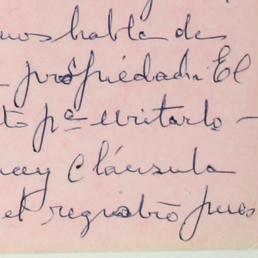 nos habla de
propiedad. El
to pª evitarlo -
hay cláusula
el registro pues